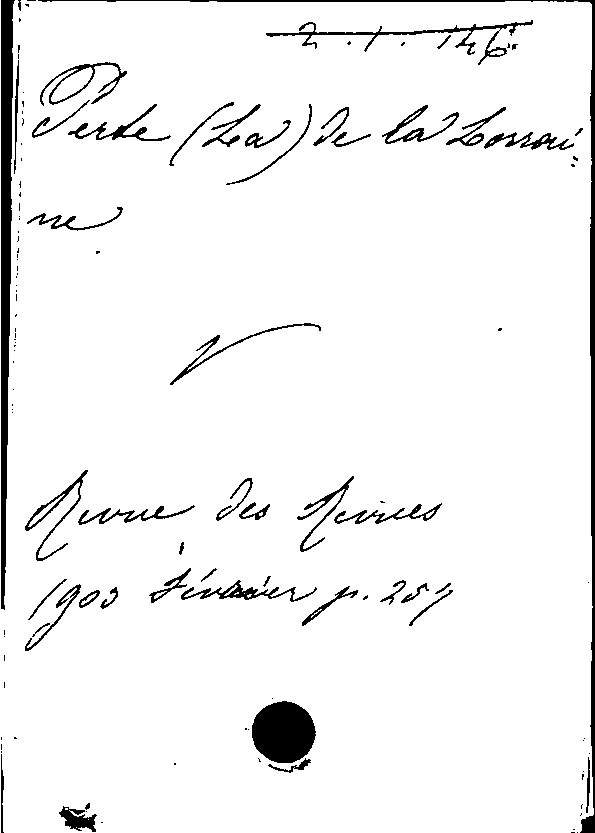 2.1.146
Perte (La) de la Lorrai=
ne
Revue des Revues
1903 Février p. 257